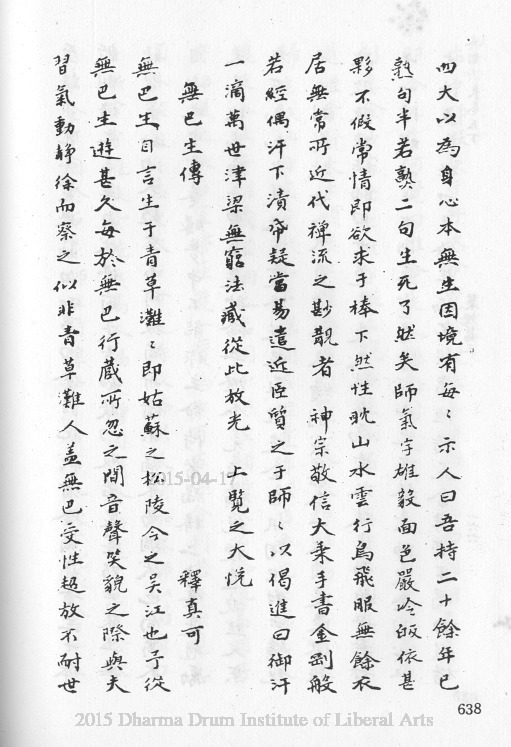 四大以為身心本無生因境有每〻示人曰吾持二十餘年已
熟句半若熟二句生死了然矣師氣宇雄毅面色嚴冷皈依甚
夥不假常情即欲求于棒下然性耽山水雲行鳥飛服無餘衣
居無常所近代禪流之尠覯者 神宗敬信大乘手書金剛般
若經偶汗下漬帝疑當易遣近臣質之于師〻以偈進曰御汗
一滴萬世津梁無窮法藏從此放光 上覽之大悅
無巴生傳 釋真可
無巴生自言生于青草灘〻即姑蘇之松陵今之吳江也予從
無巴生遊甚久每於無巴行藏所忽之間音聲笑貌之際與夫
習氣動靜徐而察之似非青草灘人蓋無巴受性超放不耐世
638
2015-04-17
2015 Dharma Drum Institute of Liberal Arts